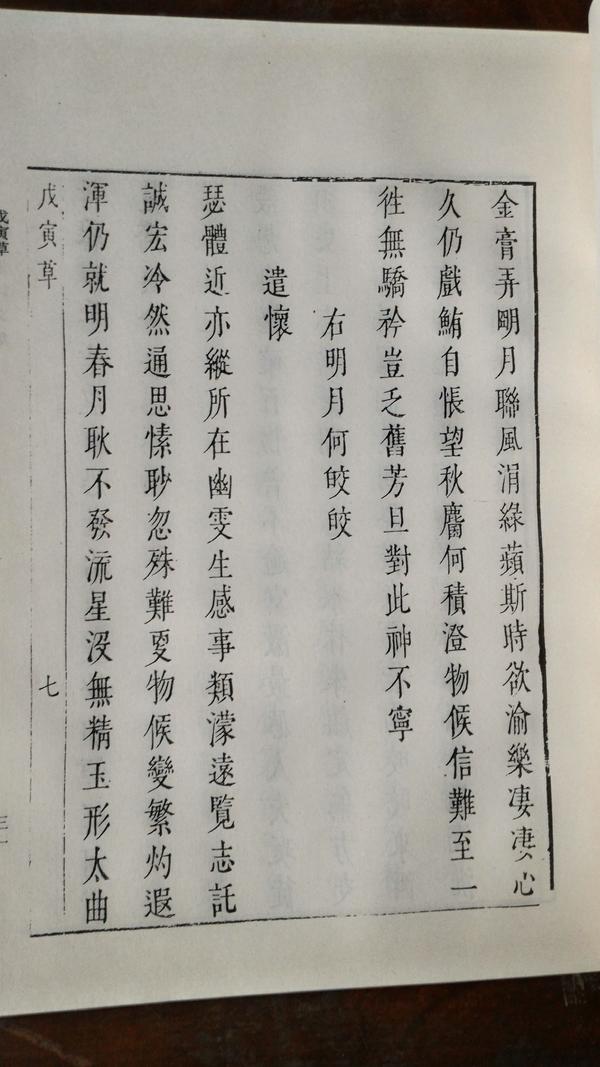 金膏弄明月聯風涓綠蘋斯時欲渝樂凄凄心
久仍戲鮪自悵望秋麕何積澄物候信難至一
徃無驕矜豈乏舊芳旦對此神不寧
右明月何皎皎
遣懷
瑟體近亦縱所在幽雯生感事類濛遠覽志託
誠宏冷然通思愫聍忽殊難夏物候變繁灼遐
渾仍就明春月耿不發流星沒無精玉形太曲
戊寅草
七
戊寅草